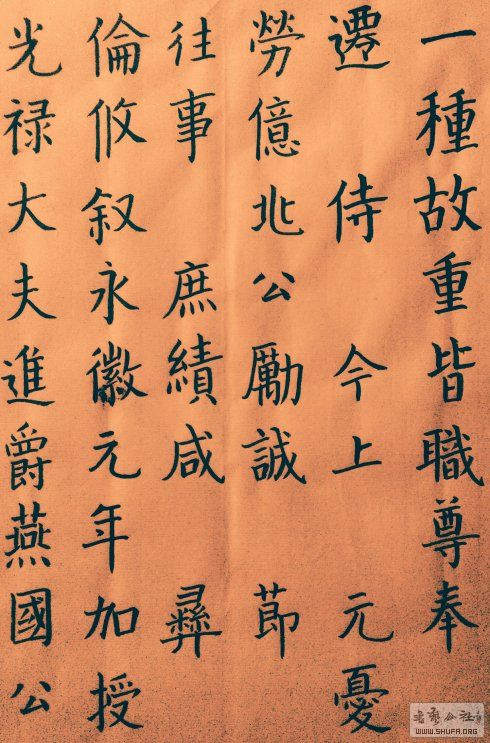 一種故重皆職尊奉
遷 侍 今上 元憂
勞億兆公勵誠 節
往事 庶績咸 彝
倫攸叙永徽元年加授
光禄大夫進爵燕國公
書藝公社
WWW.SHUFA.ORG